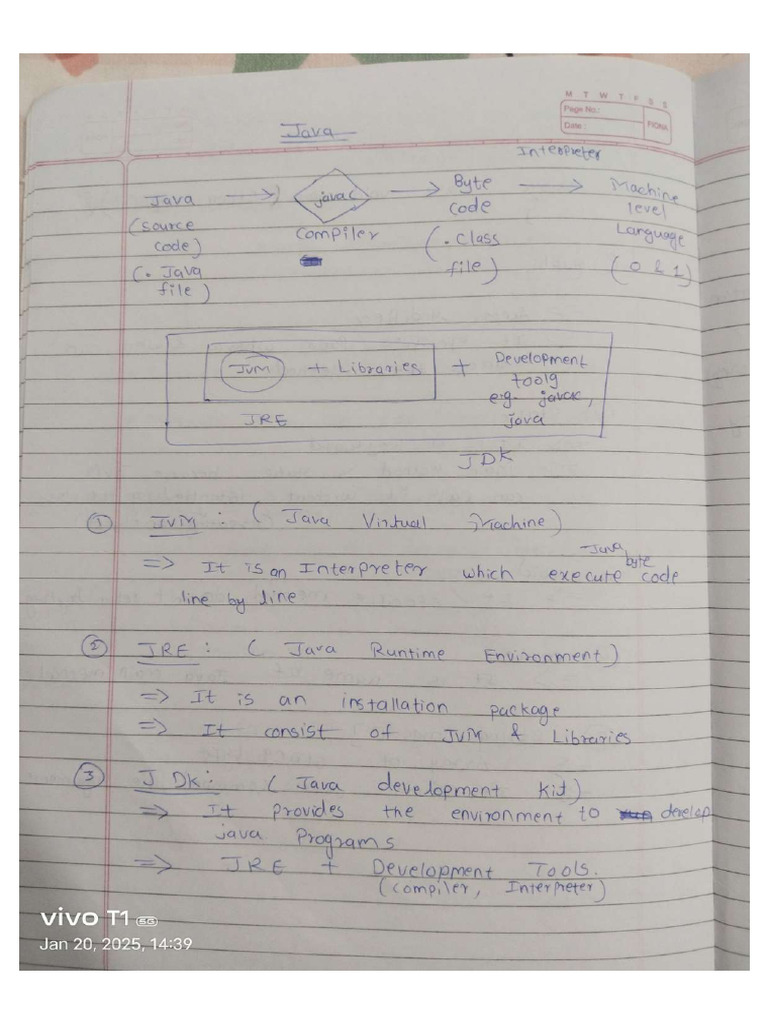 M T W T F S S
Page No.:
Date:
FIONA
Java
Interpreter
Java → javac → Byte code → Machine level Language
(source code) Compiler (.class file) (0 & 1)
(.Java file)
JVM + Libraries + Development tools
e.g. javac,
java
JRE
JDK
① JVM : (Java Virtual Machine)
Java byte
=> It is an Interpreter which execute code
line by line
② JRE : ( Java Runtime Environment)
=> It is an installation package
=> It consist of JVM & Libraries
③ JDK : (Java development kit)
=> It provides the environment to develop
java Programs
=> JRE + Development Tools.
(compiler, Interpreter)
vivo T1 5G
Jan 20, 2025, 14:39